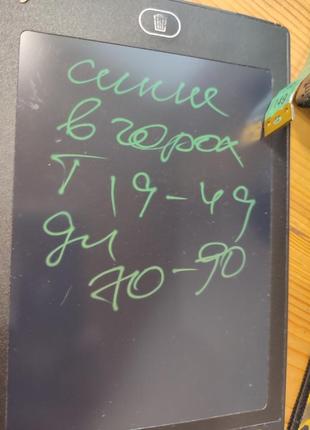 синие
в горох
Т 19-49
дл
70-90